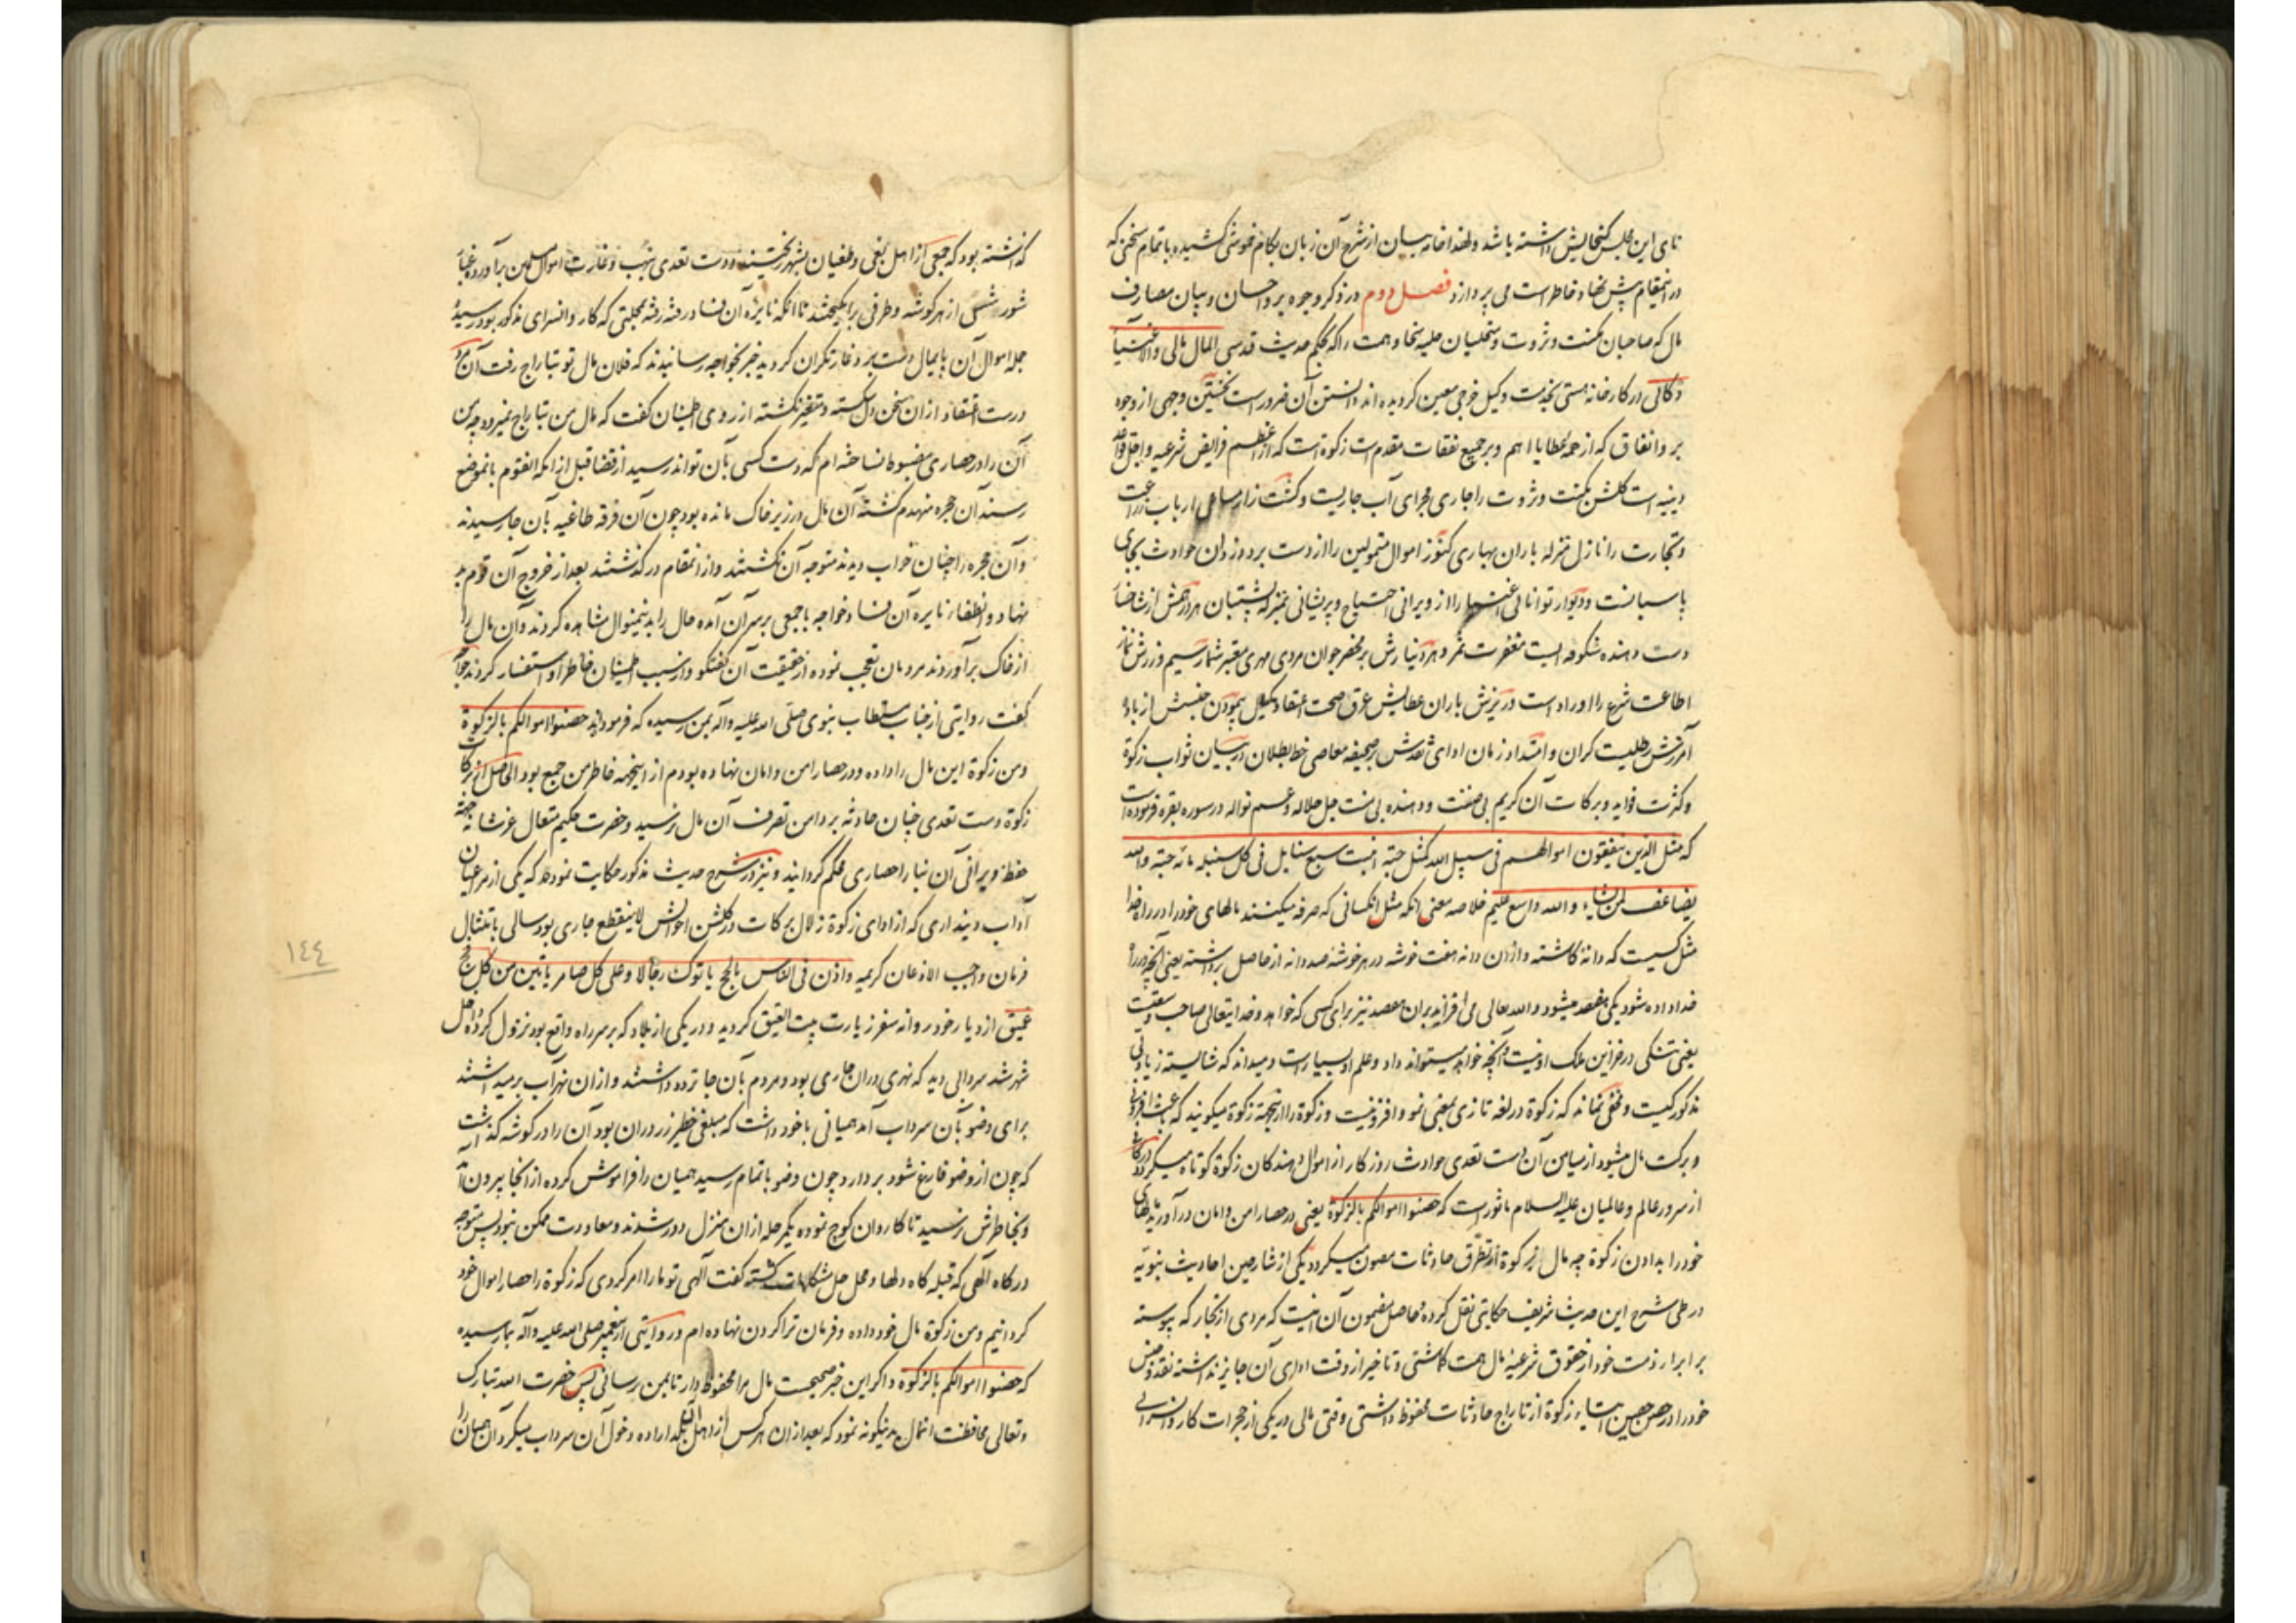 نای این مجلس گنجایش داشته باشد ولهذا خامه بیان از شرح آن زبان بکام خموشی کشیده باتمام سخنی که
در اینمقام پیش نهاد خاطر است می پردازد فصل دوم در ذکر وجوه بر و احسان و بیان مصارف
مال که صاحبان مکنت و ثروت و متحلیان حلیه سخا و همت را که بحکم حدیث قدسی المال مالی والاغنیاء
وکلائی در کارخانه هستی بخدمت وکیل خرجی معین کردیده اند دانستن آن ضرور است نخستین وجهی از وجوه
بر و انفاق که از همه عطایا اهم و بر جمیع نفقات مقدم است زکوة است که از اعظم فرایض شرعیه و اجل قواعد
دینیه است گلشن مکنت و ثروت را جاری مجرای آب جاریست و کشت زار ارباب زراعت
و تجارت را نازل منزله باران بهاری کنوز اموال متمولین را از دست برد دزدان حوادث بجای
پاسبانست و دیوار توانائی اغنیا را از ویرانی احتیاج و پریشانی بمنزله پشتیبان هر درهمش از شاخسار
دست دهنده شکوفه ایست مغفرت ثمر و هر دینارش بر محضر جوان مردی مهری معتبر شمار سیم و زرش
اطاعت شرع را اوراد است و ریزش باران عطایش عرق صحت اعتقاد کیل پیمودن جنسش از باده
آمرزش رطلیست کران و امتداد زمان ادای نقدش بر صحیفه معاصی خط بطلان در بیان ثواب زکوة
و کثرت فواید و برکات آن کریم بی ضنت و دهنده بی منت جل جلاله و عم نواله در سوره بقره فرموده است
که مثل الذین ینفقون اموالهم فی سبیل الله کمثل حبة انبتت سبع سنابل فی کل سنبله مائه حبة والله
یضاعف لمن یشاء والله واسع علیم خلاصه معنی آنکه مثل آنکسانی که صرف میکنند مالهای خود را در راه خدا
مثل کسیست که دانهٔ کاشته و از آن دانه هفت خوشه در هر خوشه صد دانه از حاصل برداشته یعنی آنچه در راه
خدا داده شود یکی هفتصد میشود والله تعالی می افزاید بر آن هفتصد نیز برای کسی که خواهد و خدایتعالی صاحب وسعتیست
یعنی تنگی در خزاین ملک او نیست و آنچه خواهد میتواند داد و علم او بسیار است و میداند که شایسته زیادتی
مذکور کیست و مخفی نماند که زکوة در لغه تازی بمعنی نمو و افزونیست و زکوة را از اینجهة زکوة میگویند که باعث افزونی
و برکت مال میشود از میامن آن دست تعدی حوادث روزکار از اموال دهندکان زکوة کوتاه میکردد
از سرور عالم و عالمیان علیه السلام ماثور است که حصنوا اموالکم بالزکوة یعنی در حصار امن و امان در آورید مالهای
خود را بدادن زکوة چه مال از زکوة از تطرق حادثات مصون میکردد یکی از شارحین احادیث نبویه
در طی شرح این حدیث شریف حکایتی نقل کرده و حاصل مضمون آن اینست که مردی از تجار که پیوسته
برابر از ذمت خود از حقوق شرعیهٔ مال همت کماشتی و تاخیر از وقت ادای آن جایز نداشته نقد و جنس
خود را در حصن حصین ایتاء زکوة از تاراج حادثات محفوظ داشتی وقتی مالی در یکی از حجرات کاروانسرائی
که گذاشته بود که جمعی از اهل بغی و طغیان بشهر ریختند و دست تعدی بنهب و غارت اموال مسلمین برآورده غبار
شورش از هر گوشه و طرفی برانگیختند تا آنکه نایره آن فساد رفته رفته بمحلتی که کاروانسرای مذکور بود رسیده
جمله اموال آن پایمال دست برد غارتگران گردید خبر بخواجه رسانیدند که فلان مال تو بتاراج رفت آن مرد
درست اعتقاد از آن سخن دل شکسته و متغیر نکشته از روی اطمینان گفت که مال من بتاراج نمیرود چه من
آن را در حصاری مضبوط نساخته ام که دست کسی بآن تواند رسید از قضا قبل از آنکه آنقوم بانموضع
رسند آن حجره منهدم گشته آن مال در زیر خاک مانده بود چون آن فرقه طاغیه بآن جا رسیدند
و آن حجره را چنان خراب دیدند متوجه آن نگشتند و از آنمقام درگذشتند بعد از خروج آن قوم بد
نهاد و انطفاء نایره آن فساد خواجه با جمعی بر سر آن آمده حال را بدینمنوال مشاهده کردند و آن مال را
از خاک برآوردند مردمان تعجب نموده از حقیقت آن گفتگو و از سبب اطمینان خاطر او استفسار کردند خواجه
گفت روایتی از جناب مستطاب نبوی صلی الله علیه وآله بمن رسیده که فرموده اند حصنوا اموالکم بالزکوة
و من زکوة این مال را داده و در حصار امن و امان نهاده بودم از اینجهه خاطر من جمع بود الحاصل از برکات
زکوة دست تعدی چنان حادثه بر دامن تصرف آن مال نرسید و حضرت حکیم متعال عز شانه جهة
حفظ ویرانی آن بنا را حصاری محکم گردانید و نیز در شرح حدیث مذکور حکایت نموده اند که یکی از مرعیان
آداب دینداری که از ادای زکوة زلال برکات در گلشن احوالش لاینقطع جاری بود سالی بامتثال
فرمان واجب الاذعان کریمه واذن فی الناس بالحج یاتوک رجالا وعلی کل ضامر یاتین من کل فج
عمیق از دیار خود روانه سفر زیارت بیت العتیق گردید و در یکی از بلاد که بر سر راه واقع بود نزول کرده داخل
شهر شد سردابی دید که نهری در آن جاری بود و مردم بآن جا تردد داشتند و از آن نهر آب برمیداشتند
برای وضو بآن سرداب آمد همیانی با خود داشت که مبلغی خطیر زر در آن بود آن را در گوشه گذاشت
که چون از وضو فارغ شود بردارد چون وضو باتمام رسید همیان را فراموش کرده از آنجا بیرون آمد
و بخاطرش نرسید تا کاروان کوچ نموده یکمرحله از آن منزل دور شدند و معاودت ممکن نبود پس متوجه
درگاه آلهی که قبله گاه دلها و محل حل مشکلات گشته گفت آلهی تو ما را امر کردی که زکوة را حصار اموال خود
گردانیم و من زکوة مال خود داده و فرمان ترا گردن نهاده ام و روایتی از پیغمبر صلی الله علیه وآله بما رسیده
که حصنوا اموالکم بالزکوة و اگر این خبر صحیحست مال مرا محفوظ دار تا بمن رسانی پس حضرت الله تبارک
وتعالی محافظت آنمال بدینگونه نمود که بعد از آن هر کس از اهل آن بلد اراده دخول آن سرداب میکرد آن همیان را
١٤٤